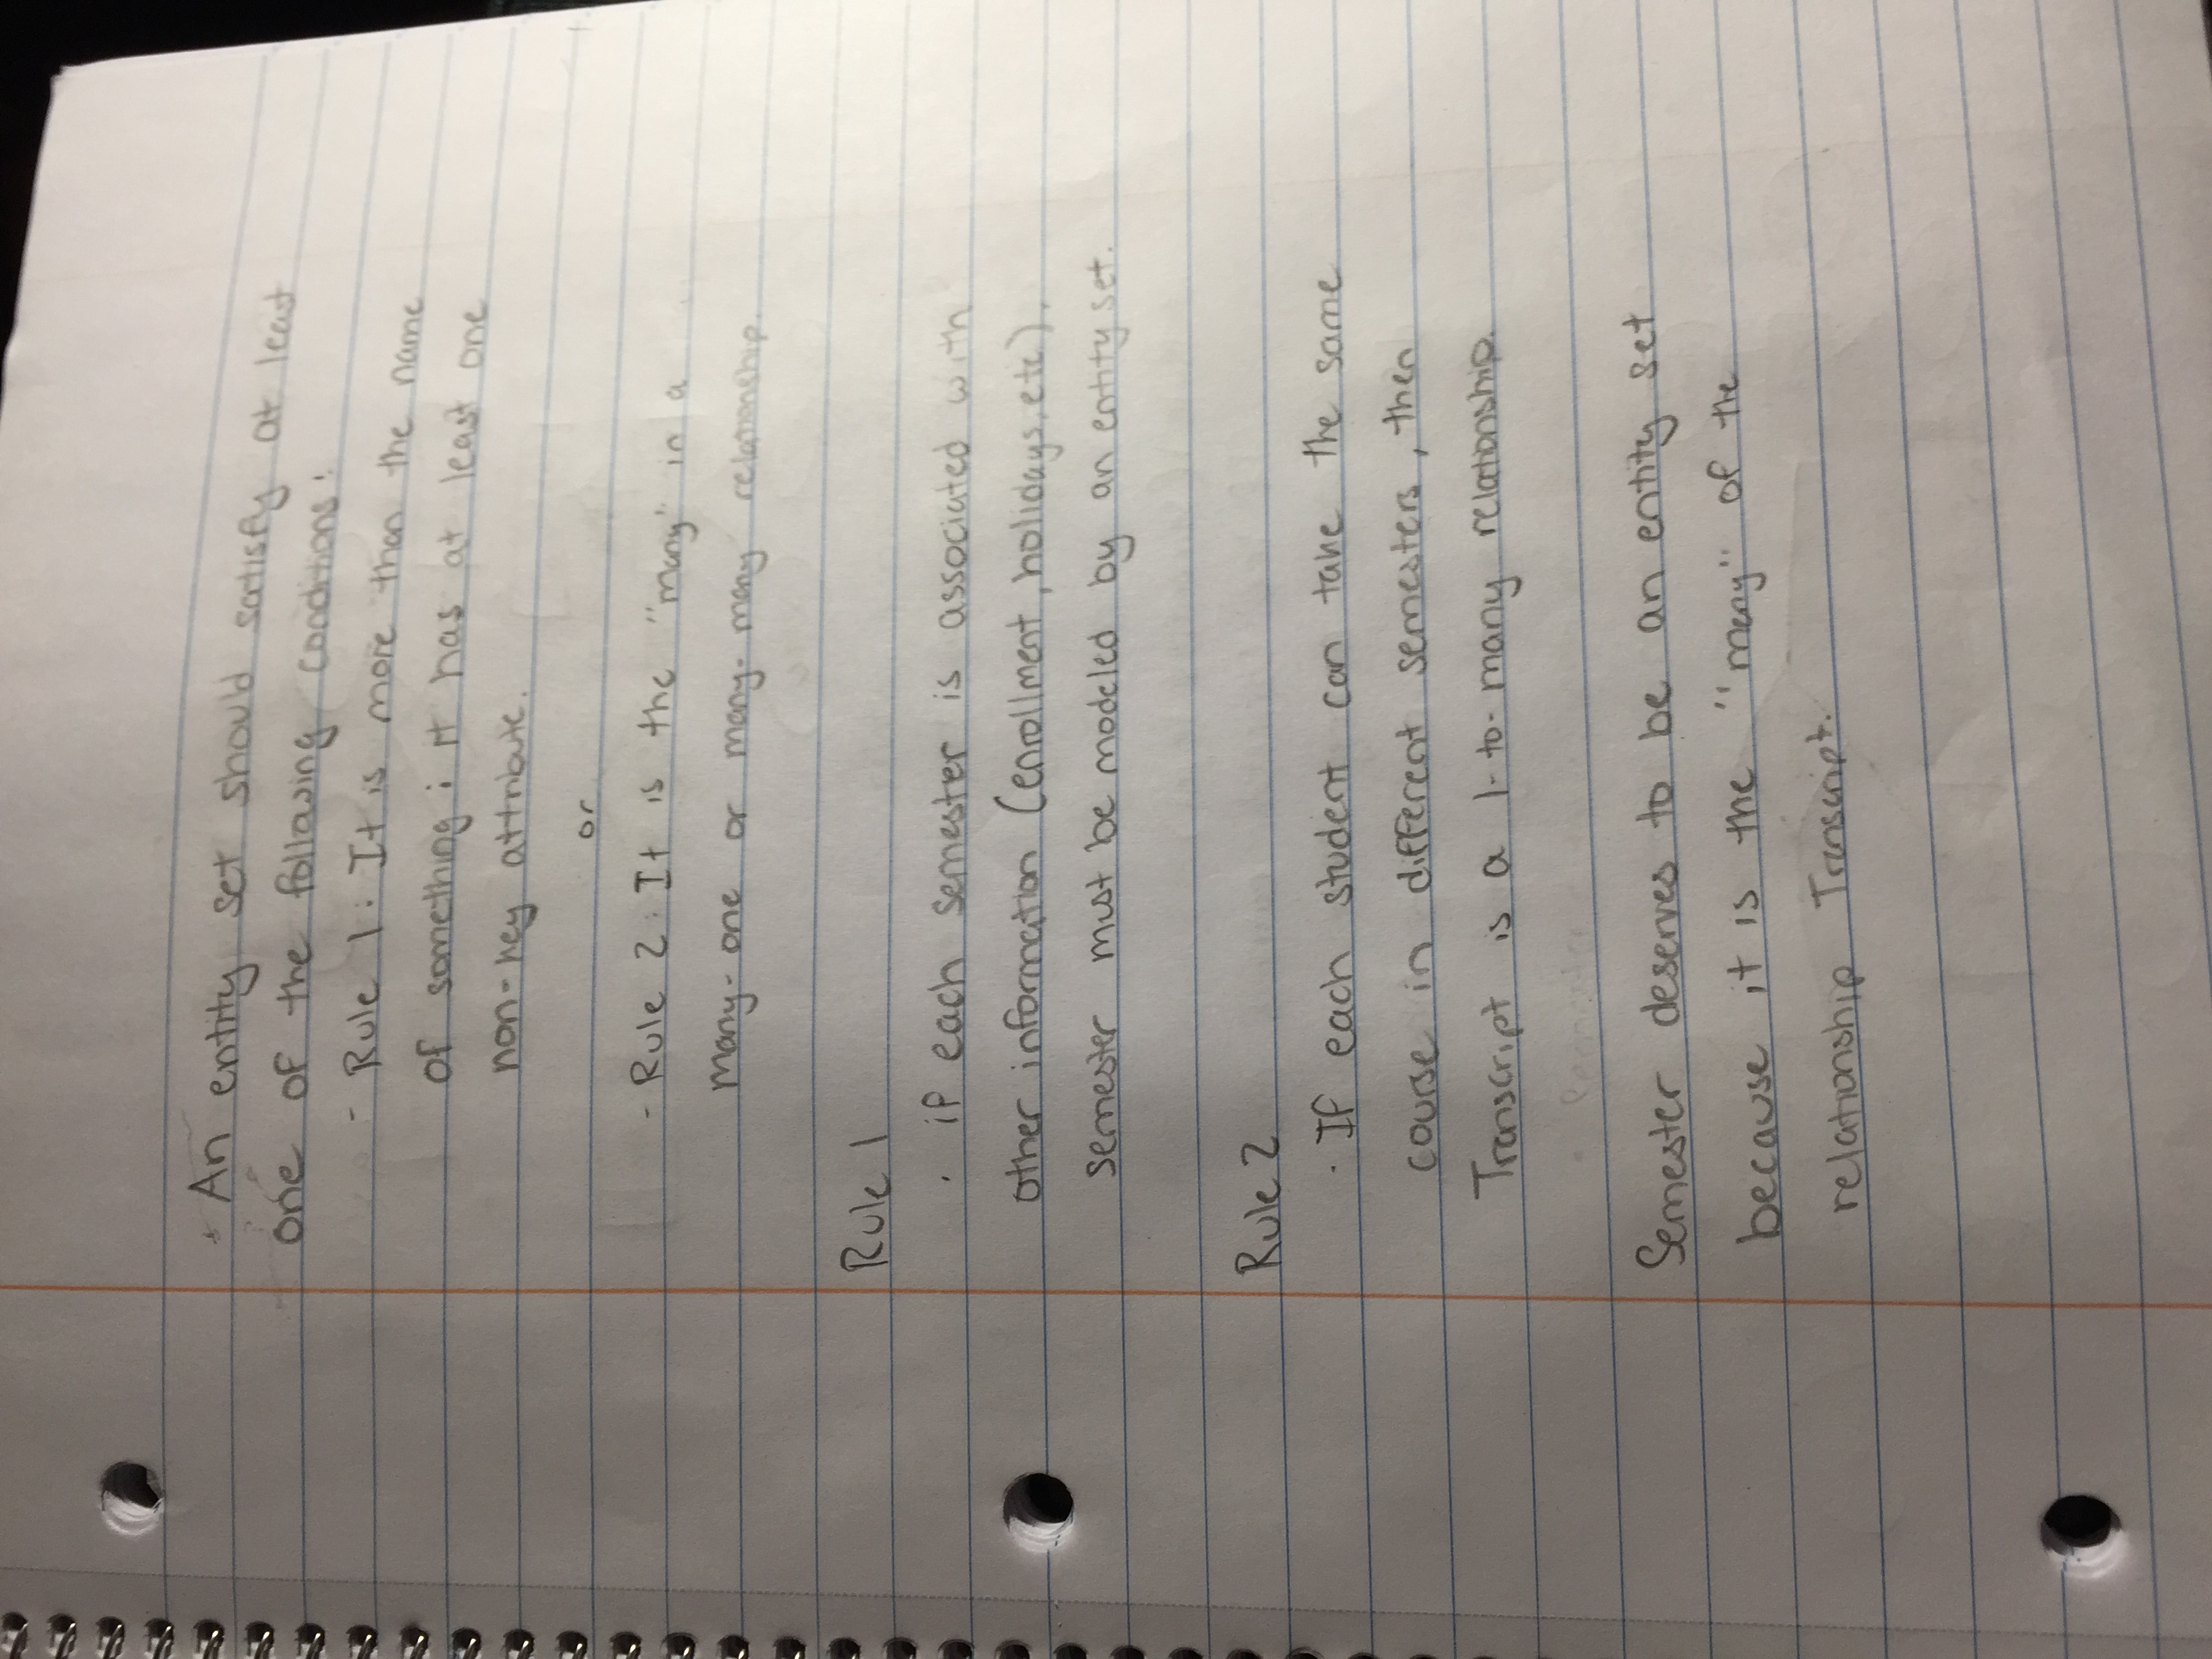 * An entity set should satisfy at least
one of the following conditions:
- Rule 1: It is more than the name
of something; it has at least one
non-key attribute.
or
- Rule 2: It is the "many" in a
many-one or many-many relationship.
Rule 1
· if each semester is associated with
other information (enrollment, holidays, etc),
semester must be modeled by an entity set.
Rule 2
· If each student can take the same
course in different semesters, then
Transcript is a 1-to-many relationship.
Semester deserves to be an entity set
because it is the "many" of the
relationship Transcript.